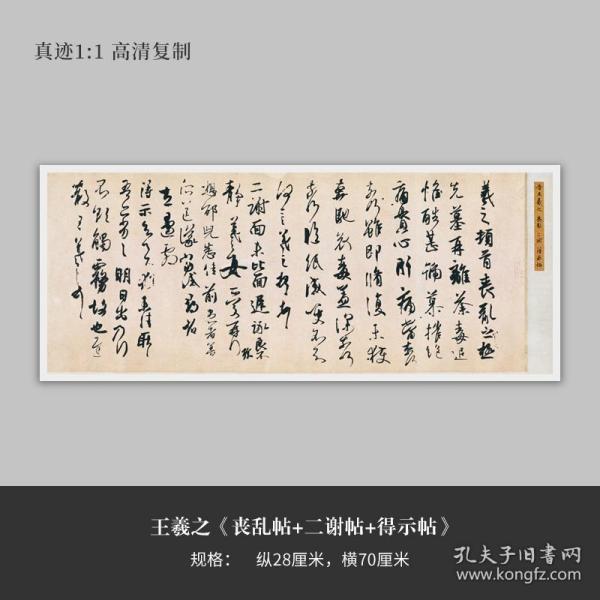 真迹1:1 高清复制
羲之顿首丧乱之极
先墓再離荼毒追
惟酷甚號慕摧絶
痛貫心肝痛當奈何
奈何雖即脩復未獲
奔馳哀毒益深奈何
奈何臨紙感哽不知
何言羲之頓首頓首
二謝面未比面遲詠良
靜羲女愛再拜
想邵兒悉佳前患者善
所送議當試尋省
左邊劇
得示知足下猶未佳耿
耿吾亦劣劣明日出乃行
不欲觸霧故也遲
散王羲之頓首
王羲之《丧乱帖+二谢帖+得示帖》
规格： 纵28厘米，横70厘米
孔夫子旧书网
www.kongfz.com